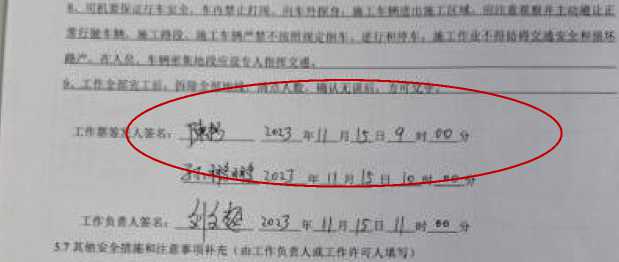 8、司机要保证行车安全，车内禁止打闹、向车外探身，施工车辆进出施工区域，应注意观察并主动避让正
常行驶车辆。施工路段，施工车辆严禁不按照规定倒车、逆行和停车，施工作业不得妨碍交通安全和损坏
路产。在人员、车辆密集地段应设专人指挥交通。
9、工作全部完工后，拆除全部地线，清点人数，确认无误后，方可
工作票签发人签名： 2023 年 11 月 15 日 9 时 00 分
2023 年 11 月 15 日 10 时 00 分
工作负责人签名： 刘文超 2023 年 11 月 15 日 11 时 00 分
5.7 其他安全措施和注意事项补充（由工作负责人或工作许可人填写）